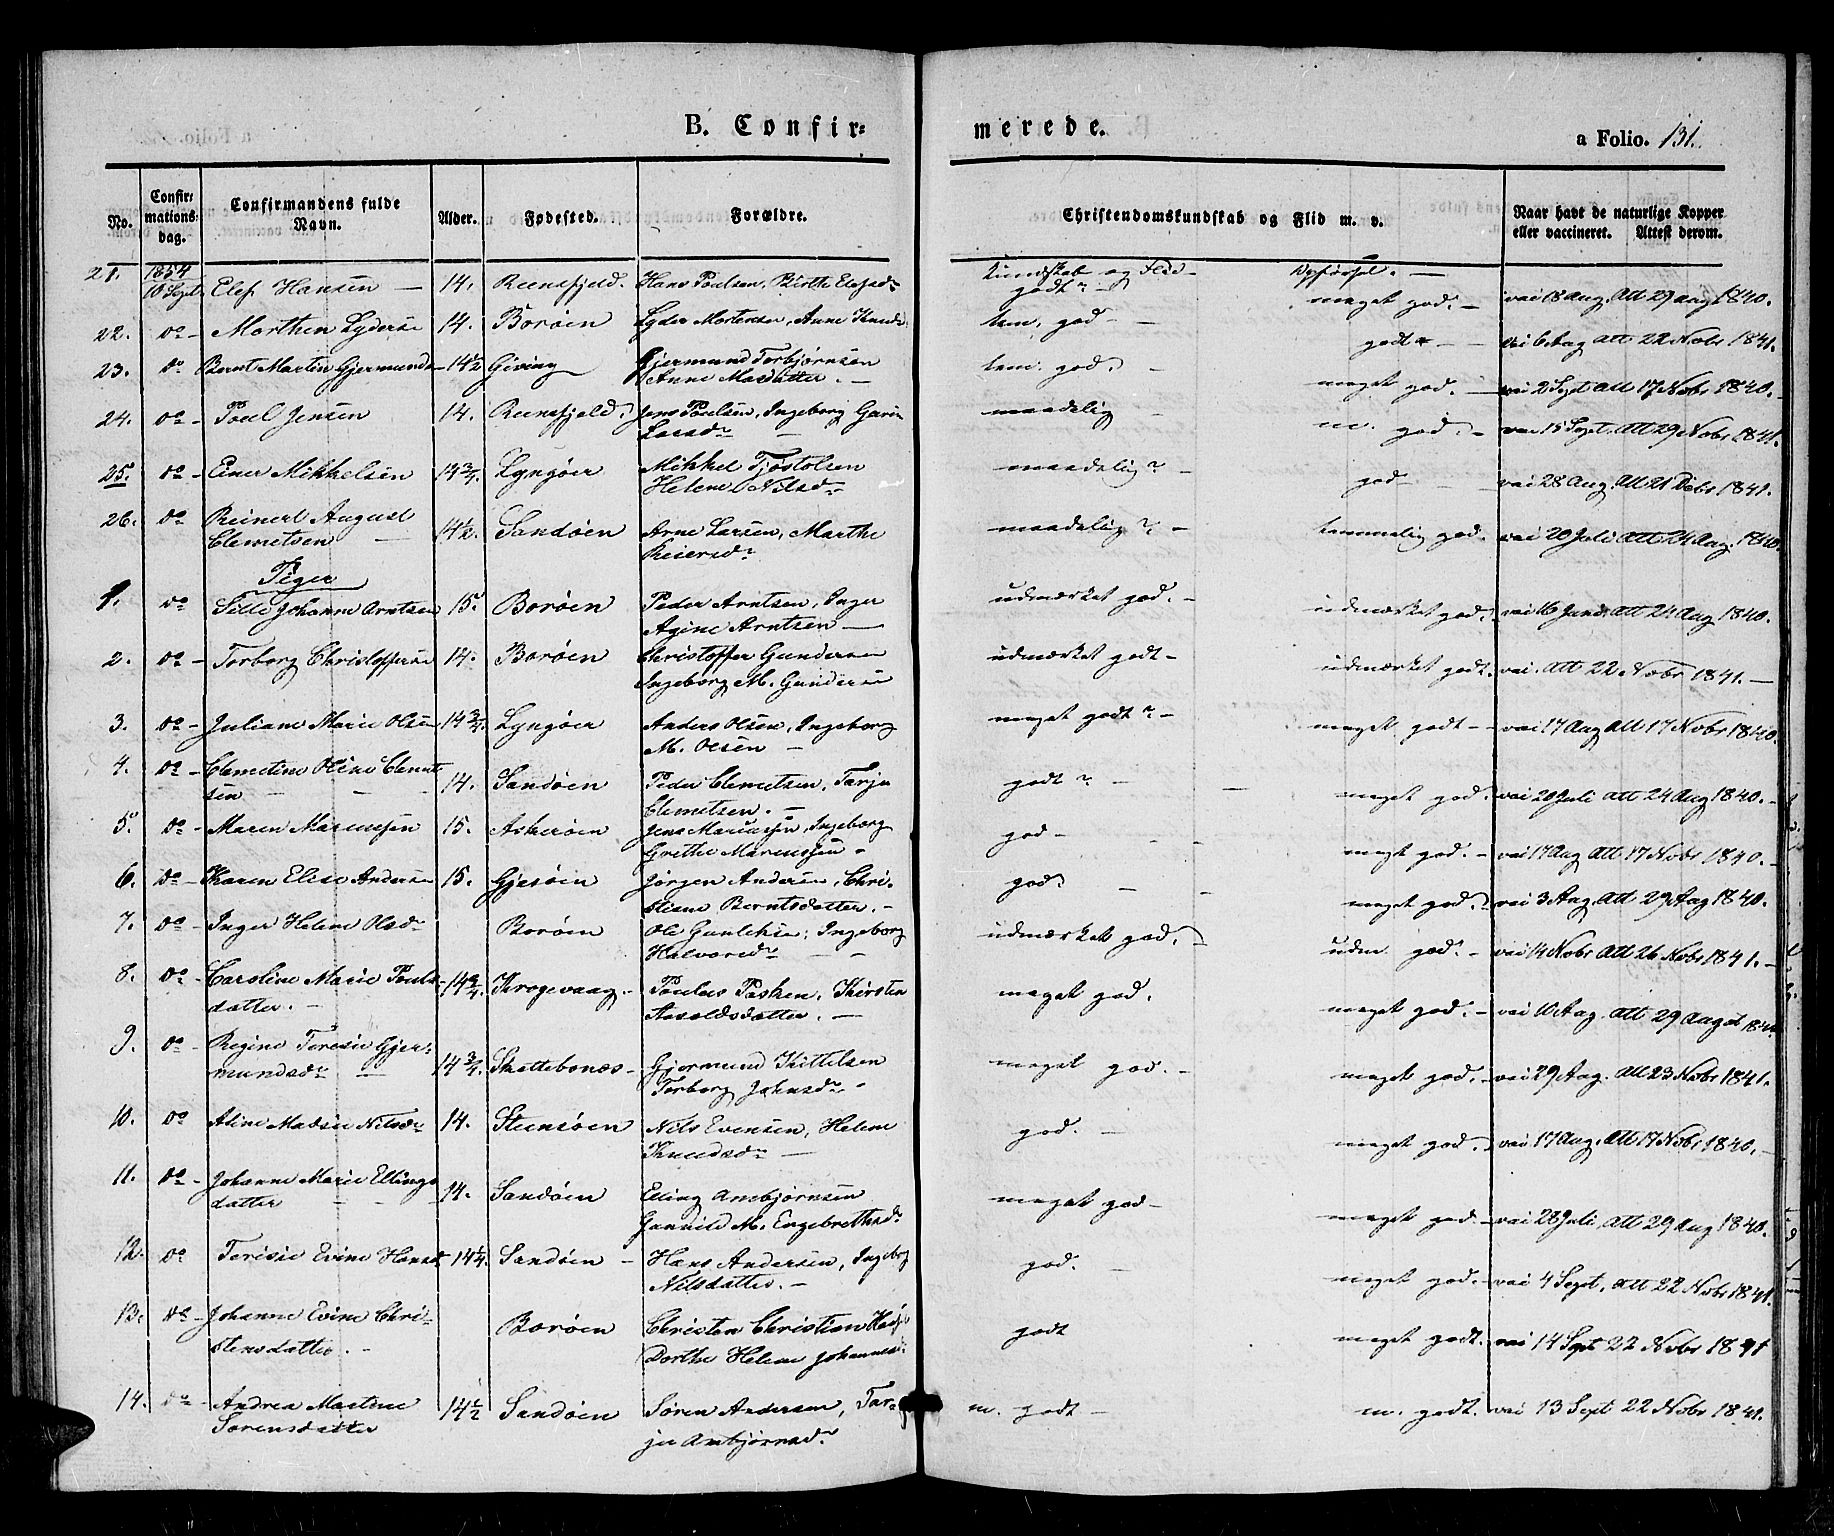 B. Confir= merede. a Folio. 131.
No. Confir= mations= dag. Confirmandens fulde Navn. Alder. Fødested. Forældre. Christendomskundskab og Flid m. v. Naar havt de naturlige Kopper eller vaccineret. Attest derom.
21. 1854 10 Sept. Elef Hansen 14. Hans Poulsen, Birthe Elefsdr Kundskab og Flid godt Opførsel. meget god. vac 18 Aug. Att 29 Aug 1840.
22. do Morthen Lyderse 14. Borøen Lyder Mortensen, Anne Knuds tem. god godt vac 6 Aug att 22 Nobr 1841.
23. do Bernt Martin Gjermunds 14½ Giving Gjermund Torbjørnsen
Anne Masdatter. tem. god. meget god. vac 2 Sept att 17 Nobr 1840.
24. do Poul Jensen 14. Jens Poulsen, Ingeborg Guri
Larsdr maadelig m. god. vac 15 Sept. Att 29 Nobr 1841.
25. do Einer Mikkelsen 14¾. Lyngøer Mikkel Tjøstolsen
Helene Nilsdr maadelig god vac 28 Aug. Att 21 Debr 1841.
26. do Reinert August
Clemetsen 14½. Sandøen Arne Larsen, Marthe
Reiersdr maadelig temmelig god. vac 20 Juli att 24 Aug. 1840.
Piger
1. do Sille Johanne Arntsen 15. Borøen Peder Arntsen, Inger
Agine Arntsen udmærket god. udmærket god. vac 16 Juni. att 24 Aug 1840.
2. do Torborg Christoffersen 14. Borøen Christoffer Gundersen
Ingeborg M. Gundersen udmærket godt udmærket godt. vac. att 22 Nobr 1841.
3. do Juliane Marie Olsen 14¾. Lyngøer Anders Olsen, Ingeborg
M. Olsen meget godt meget godt vac 17 Aug att 17 Nobr 1840.
4. do Clemetine Oline Clemet
sen 14. Sandøen Peder Clemetsen, Tarje
Clemetsen. godt meget god. vac 20 Juli att 24 Aug 1840.
5. do Maren Mariussen 15. Askerøen Jens Mariussen, Ingeborg
Grethe Mariussen god meget god. vac 17 Aug Att 17 Nobr 1840.
6. do Karen Elise Andersen 15. Gjesøen Jørgen Andersen, Chri-
stiane Berntsdatter. god. meget god. vac 3 Aug. att 29 Aug 1840.
7. do Inger Helene Olsdr Borøen Ole Gunlehsen, Ingeborg
Halvorsdr udmærket god. udm. god. vac 14 Nobr att 26 Nobr 1841.
8. do Caroline Marie Pouls
datter. 14¾. Krogevaag Poulus Pasken, Kirsten
Aasoldsdatter. meget god. meget god. vac 10 Aug. att 29 August 1840.
9. do Regine Teresie Gjer-
mundsdr 14¾. Skottebonæs Gjermund Kittelsen
Torborg Johnsdr meget god. meget god. vac 29 Aug. att 23 Nobr 1841.
10. do Aline Madsie Nilsdr 14. Steensøen Nils Evensen, Helene
Knudsdr god. meget god. vac 17 Aug. att 17 Nobr 1840.
11. do Johanne Marie Ellings
datter 14. Sandøen Elling Ambjørnsen
Gunnild M. Engebretsdr meget god meget god. vac 28 Juli. att 29 Aug 1840.
12. do Terisie Evine Hansd 14¼. Sandøen Hans Andersen, Ingeborg
Nilsdatter. god. meget god. vac 4 Sept. att 22 Nobr 1841.
13. do Johanne Evine Chri-
stensdatter. Borøen Christen Christian
Dorthe Helene Johannesd. godt meget godt. vac 14 Sept 22 Nobr 1841
14. do Andrea Martine
Sørensdatter 14½ Sandøen Søren Andersen, Tar-
je Ambjørnsdr m. godt m. godt. vac 13 Sept 22 Nobr 1841.